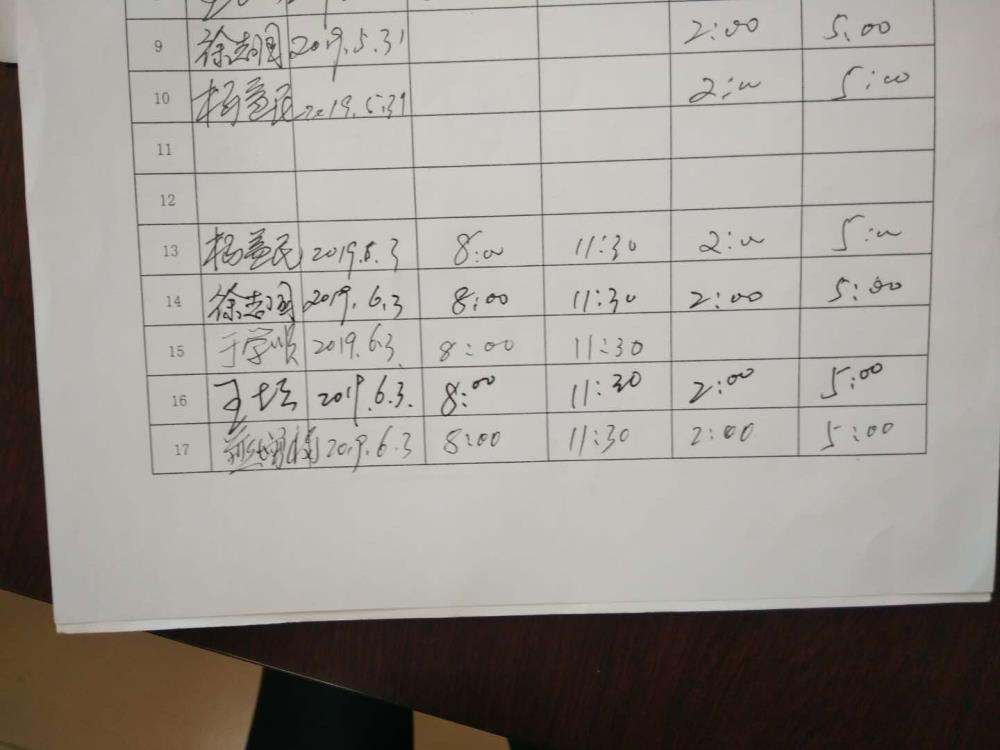 9 徐志国 2019.5.31 2:00 5:00
10 杨益民 2019.5.31 2:00 5:00
11
12
13 杨益民 2019.6.3 8:00 11:30 2:00 5:00
14 徐志国 2019.6.3 8:00 11:30 2:00 5:00
15 于学顺 2019.6.3 8:00 11:30
16 2019.6.3. 8:00 11:30 2:00 5:00
17 2019.6.3 8:00 11:30 2:00 5:00